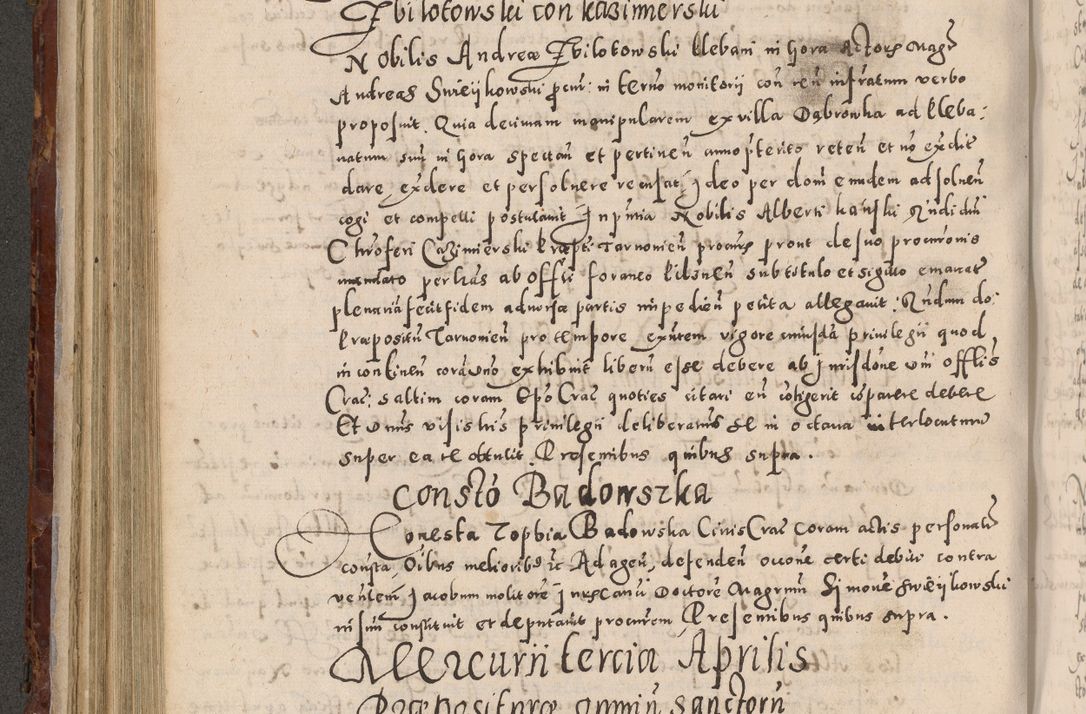 Zbilotowski con Kazimierski
Nobilis Andreæ Zbilotowski plebani in Gora Actoris Magr
Andreas Swieijkowski procur: in termo monitorij con reu infratum verbo
proposuit. Quia decimam manipularem ex villa Dąbrowka ad pleba:
natum suu in Gora spectan et pertinen anno pterito reten et no exdit
dare exdere et persoluere recusat, Ideo per dom eundem ad soluen
cogi et compelli postulauit In pntia Nobilis Alberti
Chrofori Cazimierski Præpti Tarnouien procurs prout de suo procuronis
mandato per lras ab Offii foraneo Pilsnen sub titulo et sigillo emanat
plenariã fecit fidem aduersæ partis impedien petita allegauit
Præpositu Tarnouien pro tempore exutem vigore cuiusdã priuilegij quod
in continen corã dno exhibuit liberu esse debere ab jurisdone offlis
Crac: saltim coram Epo Crac quoties citari eu cotigerit coparere debere
Et Dnus visis his priuilegij deliberatus se in octaua interlocuturu
super ea re obtulit. Presentibus quibus supra.
Constó Badowszka
Honesta Zophia Badowska Ciuis Crac coram actis personalr
consta, Oibus melioribus ic Ad agen, defenden occone certi debiti contra
venien, Jacobum molitore Juris Canci Doctore Magrum Simone Swieijkowski
in suu constituit et deputauit procurem Presentibus quibus supra.
Mercurii tercia Aprilis
Præpositurae omniu sanctoru